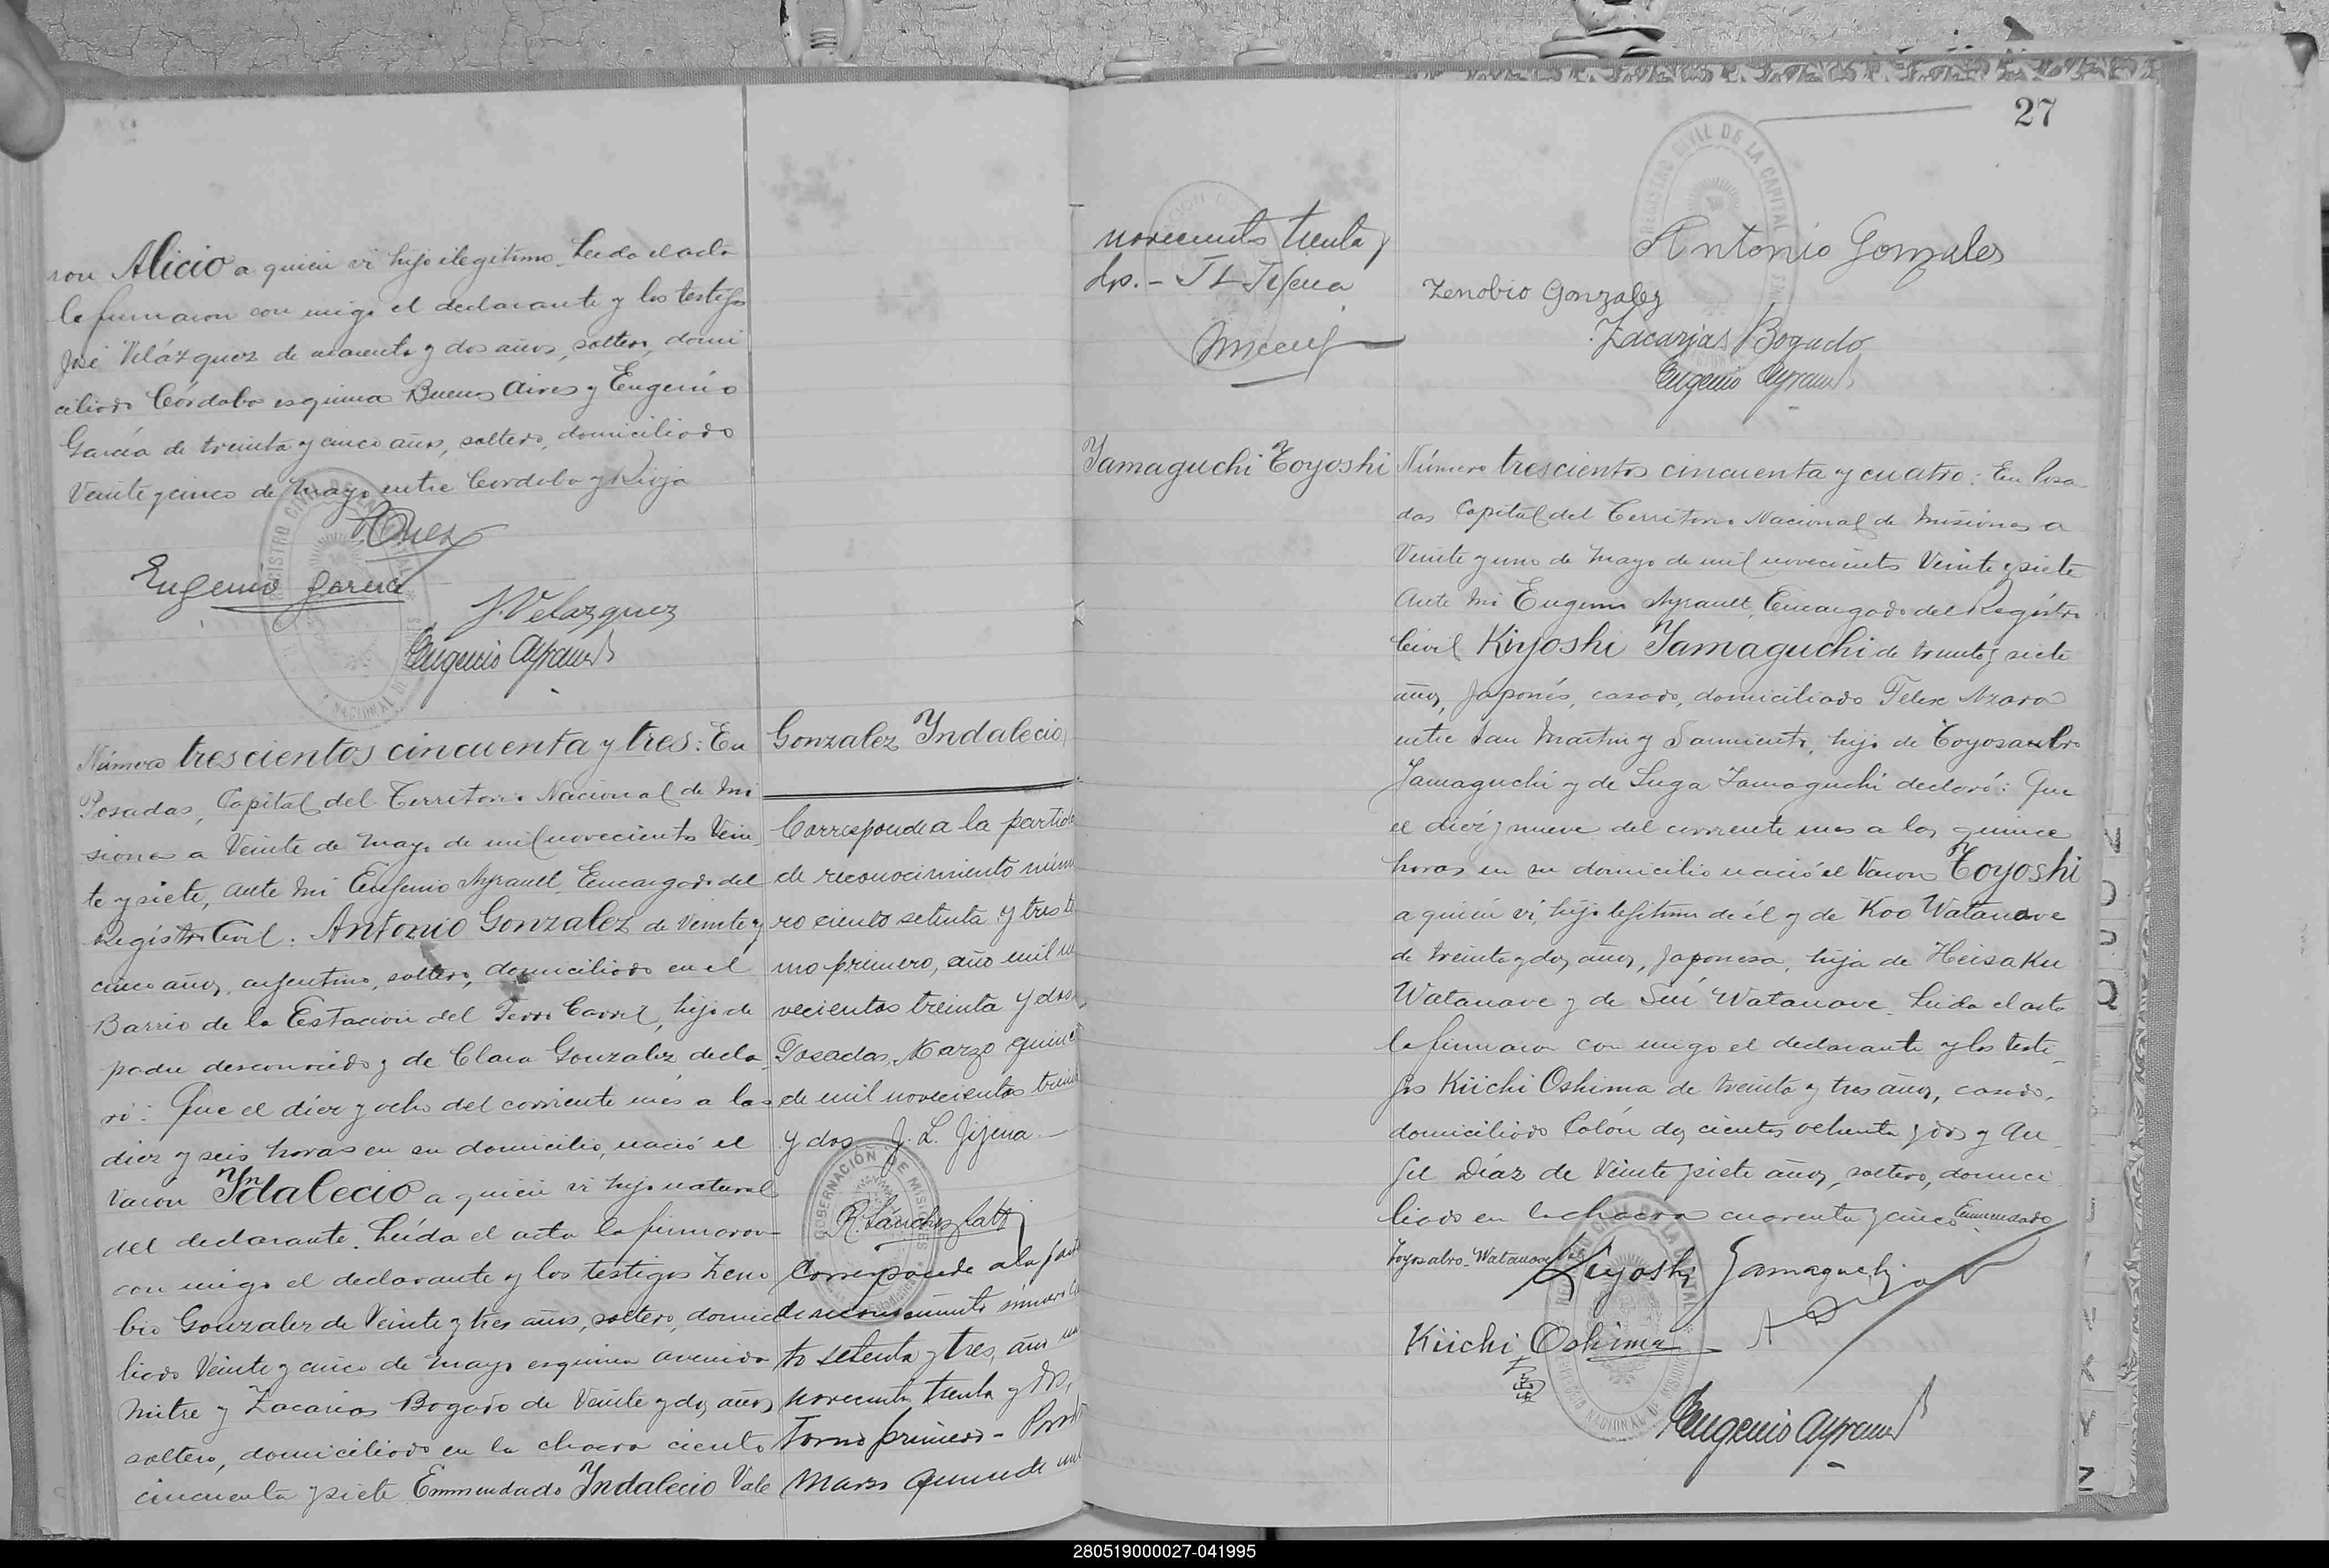 ron Alicio a quien vi hijo ilegítimo. Leida el acta
la firmaron con migo el declarante y los testigos
José Velázquez de cuarenta y dos años, soltero, domi
ciliado Córdoba esquina Buenos Aires y Eugenio
García de treinta y cinco años, soltero, domiciliado
Veinte y cinco de Mayo entre Cordoba y Rioja
Eugenio Garcia
J. Velazquez
Eugenio Ayrault
Número trescientos cincuenta y tres: En
Posadas, Capital del Territorio Nacional de Mi
siones a Veinte de Mayo de mil novecientos Vein
te y siete, ante Mi Eugenio Ayrault, Encargado del
Registro Civil: Antonio Gonzalez de Veinte y
cinco años, argentino, soltero, domiciliado en el
Barrio de la Estación del Ferro Carril, hijo de
padre desconocido y de Clara Gonzalez, decla
ró: Que el diez y ocho del corriente mes a las
diez y seis horas en su domicilio, nació el
Varon Yndalecio a quien vi hijo natural
del declarante. Leída el acta la firmaron
con migo el declarante y los testigos Zeno
bio Gonzalez de Veinte y tres años, soltero, domici
liado Veinte y cinco de Mayo esquina avenida
Mitre y Zacarias Bogado de Veinte y dos años
soltero, domiciliado en la chacra ciento
cincuenta y siete Enmendado Yndalecio Vale
Gonzalez Yndalecio
Corresponde a la partida
de reconocimiento núm
ro ciento setenta y tres to
mo primero, año mil no
vecientos treinta y dos
Posadas, Marzo quince
de mil novecientos treinta
y dos. J. L. Jijena
GOBERNACIÓN DE MISIONES
R. Sanchez Ratti
Corresponde a la part
de reconocimiento número cien
to setenta y tres, año mil
novecientos treinta y dos,
Tomo primero - Posadas
Marzo quince de mil
27
novecientos treinta y
dos. - J L Jijena
REGISTRO CIVIL DE LA CAPITAL
Antonio Gonzales
Zenobio Gonzalez
Zacarjas Bogado
Eugenio Ayrault
Yamaguchi Toyoshi
Número trescientos cincuenta y cuatro: En Posa
das Capital del Territorio Nacional de Misiones a
Veinte y uno de Mayo de mil novecientos Veinte y siete
Ante Mi Eugenio Ayrault, Encargado del Registro
Civil Kiyoshi Yamaguchi de treinta y siete
años, Japonés, casado, domiciliado Felix Azara
entre San Martin y Sarmiento, hijo de Toyosabro
Yamaguchi y de Suga Yamaguchi declaró: Que
el diez y nueve del corriente mes a las quince
horas en su domicilio nació el Varon Toyoshi
a quien vi, hijo legítimo de él y de Koo Watanave
de treinta y dos años, Japonesa, hija de Heisaku
Watanave y de Sui Watanave. Leida el acta
la firmaron con migo el declarante y los testi-
gos Kiichi Oshima de treinta y tres años, casado,
domiciliado Colón dos cientos ochenta y dos y An
gel Díaz de Veinte y siete años, soltero, domici
liado en la chacra cuarenta y cinco Enmendado
Toyosabro - Watanave Vale
Kiyoshi Yamaguchi
Kiichi Oshima
Eugenio Ayrault
280519000027-041995